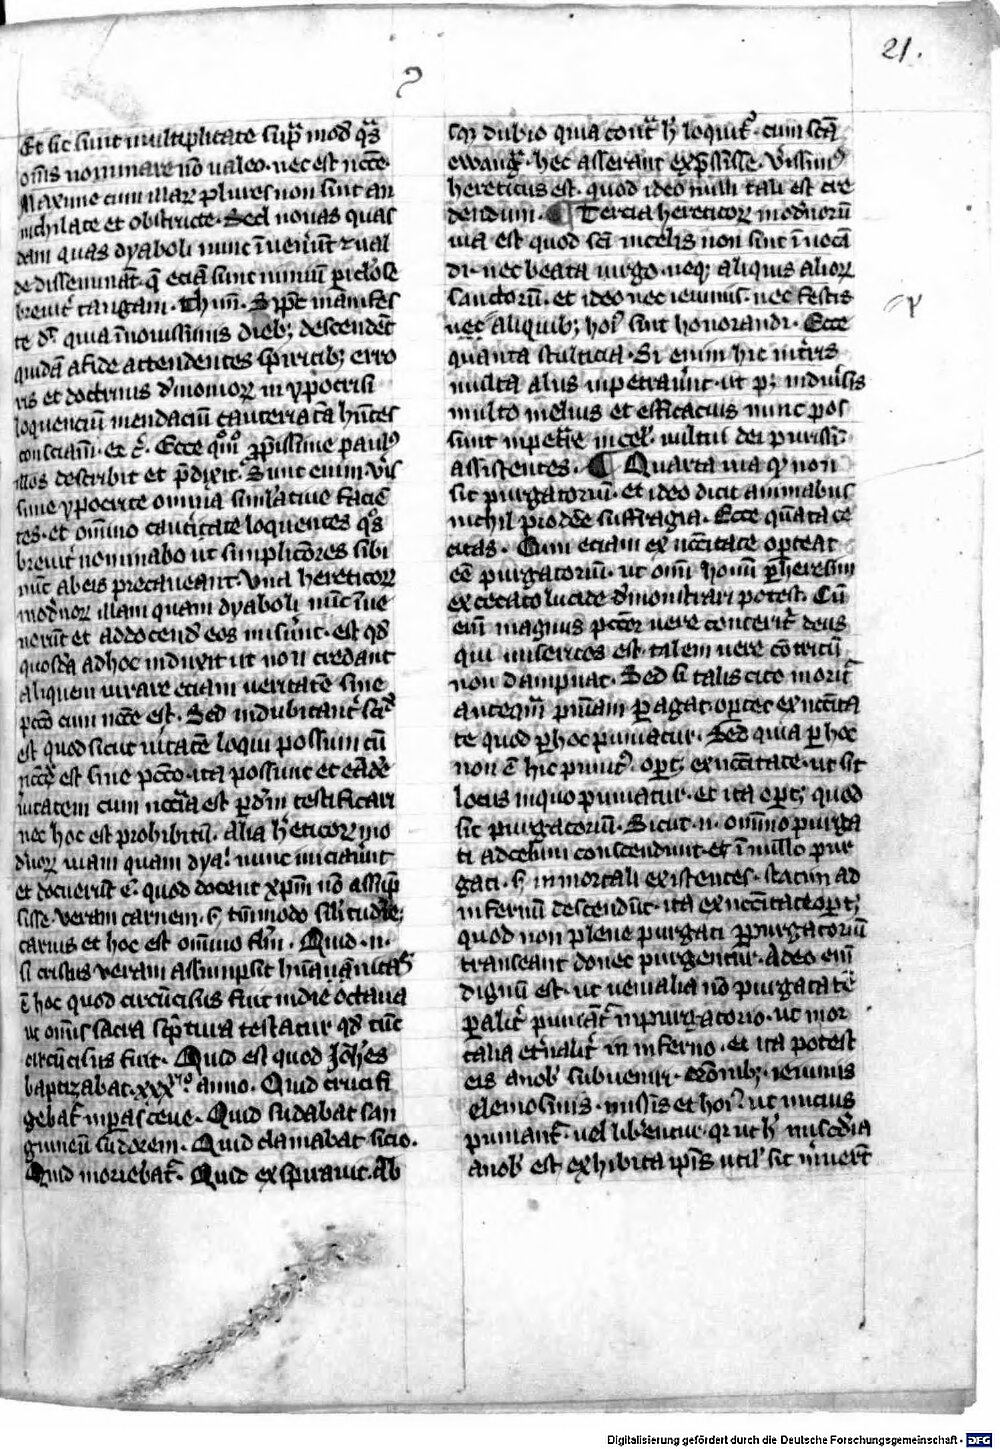 21.
Et sic sunt multiplicate sup̄ mod̄ qͣs
om̄s nominare nō ualeo. nec est nc̄ce.
Maxime cum illaꝝ plures non sint an
nichilate et obstructe. Sed nouas quas
dam quas dyaboli nunc īuenerūt ⁊ ual
de dissemināt. q̄ eciā sunt nimiū ꝑiclōse
breuit̄ tangam.
te dr̄ quia ī nouissimis dieb; descendēt
quidā a fide attendentes spiritib; erro
ris et doctrinis d̓monioꝝ in ypocrisi
loquenciū mendaciū cauteriatā hn̄tes
consciam. et c̄. Ecce qͦmͦ ꝓpͥissime paulꝰ
illos describit et p̄dixit. Sunt enim
sime ypocrite omnia simlatiue faciē
tes. et om̄ino loquentes qͦs
breuit̄ nominabo ut simplicōres sibi
nūc ab eis precaueant. Vna hereticoꝝ
mod̓noꝝ illam quam dyaboli nūc īue
nerūt et ad docend̄ eos miser̄unt. est qd̄
quosdā ad hoc induxit ut nō credant
aliquem iurare eciam ueritatē sine
pctō cum nc̄ce est. Sed indubitant̄
est quod sicut u̓itatē loqui possum cū
nc̄ce est sine pctō. ita possunt et eād̄e
u̓itatem cum nc̄cia est ꝑ d̄m testificari
nec hoc est prohibitū. Alia h̓eticoꝝ mo
d̓noꝝ uiam quam dya. nunc inciauer̄unt
et docuer̄ūt ē. quod docent xp̄m nō assūp
sisse veram carnem. s̄ tm̄modo
carnis et hoc est om̄ino flm̄. Quid .n.
si cristus veram assumpsit
ē hoc quod circūcisus fuit in die octaua
ut om̄is sacra scp̄tura testatur qd̄ tūc
circūcisus fuit. Quid est quod Joh̓es
baptizabat. xxxͫͦ. anno. Quid crucifi
gebat̄ in parasceue. Quid sudabat san
guineū sudorem. Quid clamabat sicio.
Quid moriebat̄. Quid exspirauit. Ab
sqꝫ dubio quia cont̄ h̄ loquit̄. cum scā
ewang̓. hec asserant exp̄ssisse.
hereticus est. quod ideo nulli tali est cre
dendum. ¶ Tercia hereticoꝝ mod̓noꝝ
uia est quod scī in celis non sint īuocā
di. nec beata uirgo. neqꝫ aliquis alioꝝ
sanctorū. et ideo nec ieiuniis. nec festis
nec aliquib; hoꝝ sint honorandi. Ecce
quanta stulticia. Si enim hic in t̓ris
multa aliis inpetrauer̄unt. ut
multo melius et efficacius nunc pos
sunt inpet̄re in cel̄. uultui dei purissi.
assistentes. ¶ Quarta uia qͦ non
sit purgatoriū. et ideo dicit animabus
nichil prodēe suffragia. Ecce qͣnta ce
citas. Cum eciam ex nc̄citate oporteat
eē purgatoriū. ut om̄i homī ꝑ heresim
excecato lucide d̓monstrari potest. Cū
em̄ magnus pctōr uere conterit̄. deus
qui misericors est. talem uere cōtritū
non dampnat. Sed si talis cito morit̄
anteqͣm penam ꝑagat. oportet ex nc̄cita
te quod ꝑ hoc puniatur. Sed quia ꝑ hoc
non ē hic punitꝰ. oport; ex nc̄citate. ut sit
locus in quo puniatur. et ita oport; quod
sit purgatoriū. Sicut .n. om̄ino purga
ti ad celum conscendunt. et ī nullo pur
gati. s̄ in mortali existentes. statim ad
infernū descendūt. ita ex nc̄citate oport;
quod non plene purgati ꝑ purgatoriū
transeant donec purgentur. Adeo em̄
dignū est. ut uenialia nō purgata tē
ꝑalit̓ puniāt̄ in purgatorio. ut mor
talia et̓nalit̓ in inferno. et ita potest
eis a nob̄ subueniri. orōnib;. ieiuniis
elemosinis. missis et hoꝝ. ut mitius
puniant̄. uel lib̓entur. qr ut h̄ miscd̓ia
a nob̄ est exhibita ip̄is util̄ sit